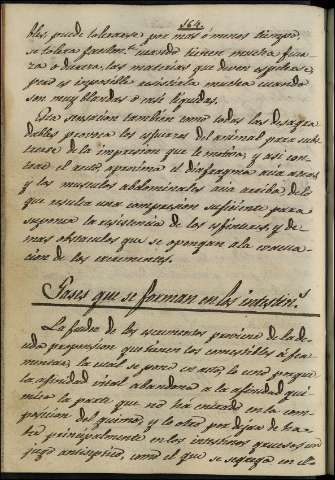 164.
bles puede tolerarse por mas ó menos tiempo,
se tolera facilm.te cuando tienen mucha fuer
za o dureza, las materias que deven espelerse,
pero es imposible resistirla mucho cuando
son muy blandas ó casi liquidas.
Esta sensacion tambien como todas las desagra
dables provoca los esfuerzos del animal para subs
traerse de la impresion que le motiva, y asi con
trae el recto, aproxima el diafragma acia atras,
y los musculos abdominales acia arriba de lo
que resulta una compresion suficiente para
superar la resistencia de los esfinteres, y de
mas obstaculos que se opongan a la evacua
cion de los excrementos.
Gases que se forman en los intestin.s
La fetidez de los excrementos proviene de la de
cida propension que tienen los comestibles á fer
mentar, la cual se pone en acto, lo uno porque
la afinidad vital abandona a la afinidad quí
mica la parte que no há entrado en la com
posicion del quimo, y lo otro por dejar de haver
se principalmente en los intestinos gruesos un
jugo antiseptico, como el que se segrega en el es